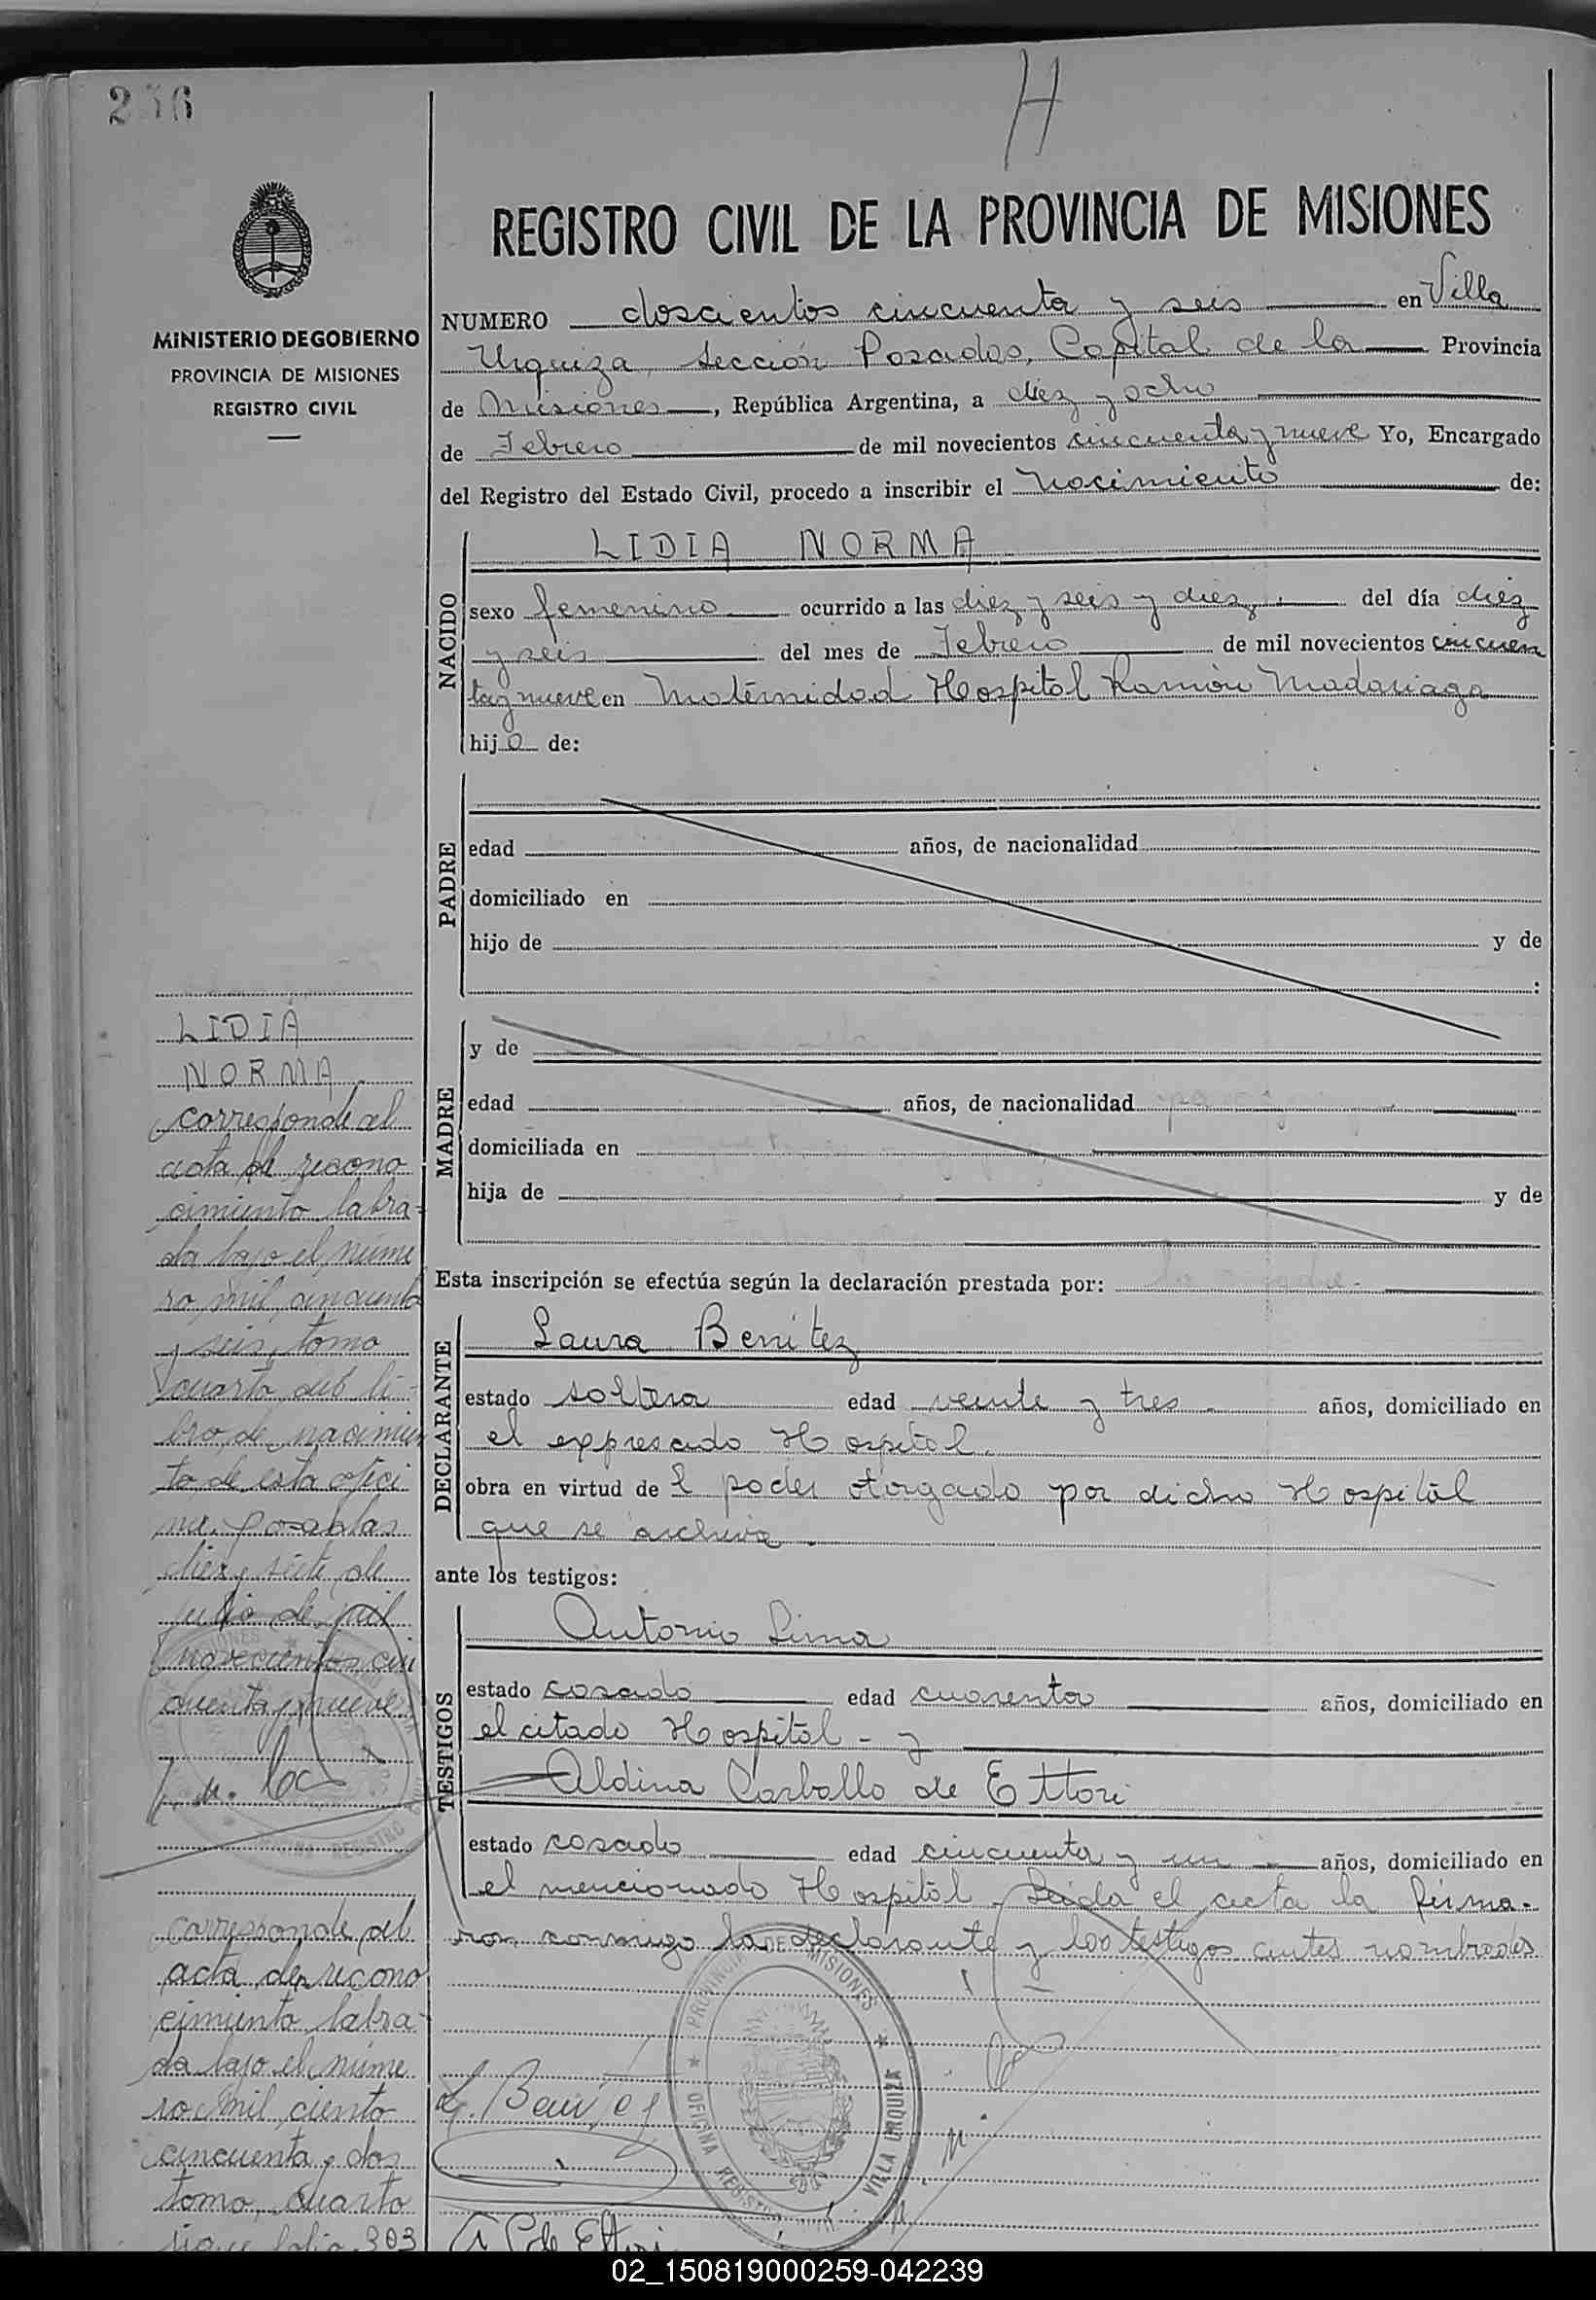 256
H
MINISTERIO DE GOBIERNO
PROVINCIA DE MISIONES
REGISTRO CIVIL
REGISTRO CIVIL DE LA PROVINCIA DE MISIONES
NUMERO doscientos cincuenta y seis en Villa
Urquiza, sección Posadas, Capital de la Provincia
de Misiones, República Argentina, a diez y ocho
de Febrero de mil novecientos cincuenta y nueve Yo, Encargado
del Registro del Estado Civil, procedo a inscribir el nacimiento de:
NACIDO
LIDIA NORMA
sexo femenino ocurrido a las diez y seis y diez, del día diez
y seis del mes de Febrero de mil novecientos cincuen
ta y nueve en Maternidad Hospital Ramón Madariaga
hija de:
PADRE
edad años, de nacionalidad
domiciliado en
hijo de y de
:
MADRE
y de
edad años, de nacionalidad
domiciliada en
hija de y de
Esta inscripción se efectúa según la declaración prestada por:
DECLARANTE
Laura Benitez
estado soltera edad veinte y tres años, domiciliado en
el expresado Hospital.
obra en virtud de l poder otorgado por dicho Hospital
que se archiva.
ante los testigos:
TESTIGOS
Antonio Lima
estado casado edad cuarenta años, domiciliado en
el citado Hospital - y
Aldina Carballo de Ettori
estado casado edad cincuenta y un años, domiciliado en
el mencionado Hospital. Leida el acta la firma-
ron conmigo la declarante y los testigos antes nombrados
L. Benitez
A C de Ettori
PROVINCIA DE MISIONES
OFICINA REGISTRO
VILLA URQUIZA
LIDIA
NORMA
corresponde al
acta de recono
cimiento labra-
da bajo el núme
ro mil cincuenta
y seis, tomo
cuarto sub li-
bro de nacimien
to de esta ofici
na. Posadas
diez y siete de
julio de mil
novecientos cin
cuenta y nueve
corresponde al
acta de recono
cimiento labra-
da bajo el núme
ro mil ciento
cincuenta y dos
tomo cuarto
sigue folio 303
02_150819000259-042239